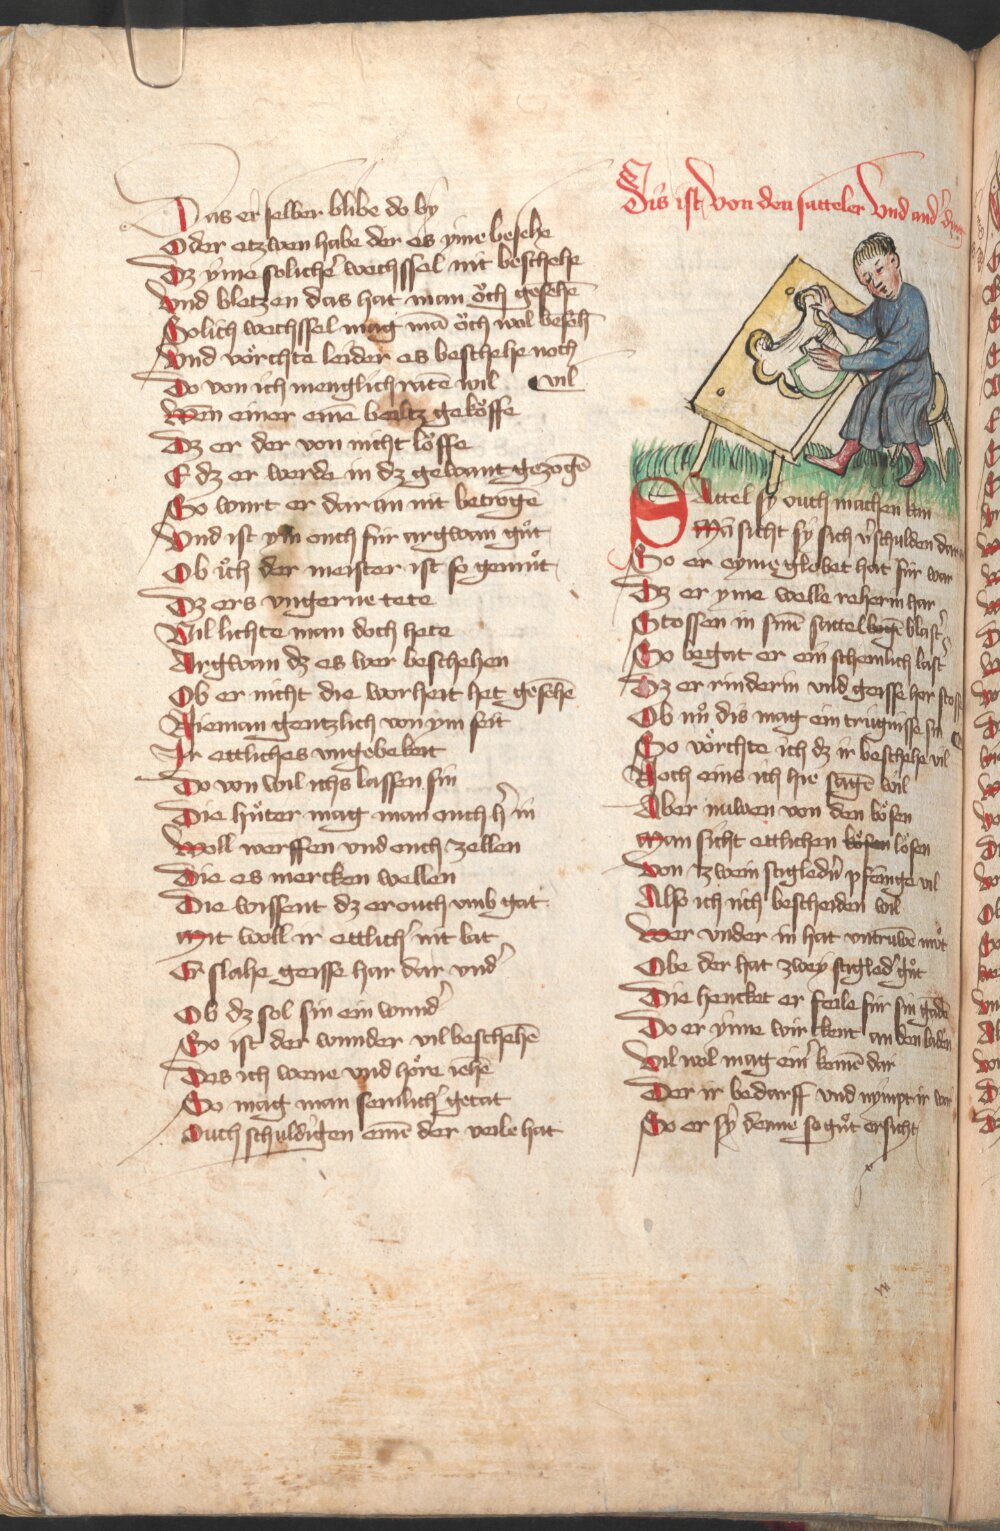 Das er selber blibe do by
Oder etzwen habe der es yme besehe
Dz yme solicher wechssel nit beschehe
Vnd bletzen das hat man öch gesehē
Solich wechssel mag mā öch wol beseh
Vnd vörchte leider es beschehe noch
Do von ich menglich ratē wil vil
Wen einer eine beltz geköffe
Dz er der von nicht löffe
E dz er werde in dz gewant gezogē
So wurt er dar an nit betrogē
Vnd ist ym ouch für argwan gůt
Ob üch der meister ist so gemůt
Dz ers vngerne tete
Vil lichte man doch hete
Argwan dz es wer beschehen
Ob er nicht die worheit het gesehē
Nieman gentzlich von ym seit
Ir ettliches vngebekeit
Do von wil ichs lassen sin
Die hüter mag man ouch h in
Woll werffen vnd ouch zellen
Die es mercken wellen
Die wissent dz er ouch vmb gat
Mit woll ir ettlich nit lat
Er slahe geisse har dar vnd
Ob dz sol sin ein wund
So ist der wunder vil beschehē
Des ich wene vnd höre iehē
So mag man semlich getat
Ouch schuldigen eine der veile hat
Dis ist von den satteler vnd and
Sattel sy ouch machen kan
Mā sicht sy sich v'schulden dar
So er eyme globet hat für war
Dz er yme welle reherin har
Stossen in sinē sattel bogē blast
So begat er ein schemlich last
Dz er rinderin vnd geisse har
Ob nů dis mag ein trügnisse sin
So vörchte ich dz ir beschehe vil
Noch eins ich hie sagē wil
Aber nuwen von den bösen
Man sicht ettlichen bösen lösen
Von zwein stigledn pfeninge vil
Also ich üch bescheiden wil
Wer vnder in hat vntruwē můt
Obe der hat zwey stigled gůt
Die hencket er feile für sin gadē
Do er yme wirkent an den laden
Vil wol mag ein komē dar
Der ir bedarff vnd nympt ir war
So er sy denne so gůt ersicht